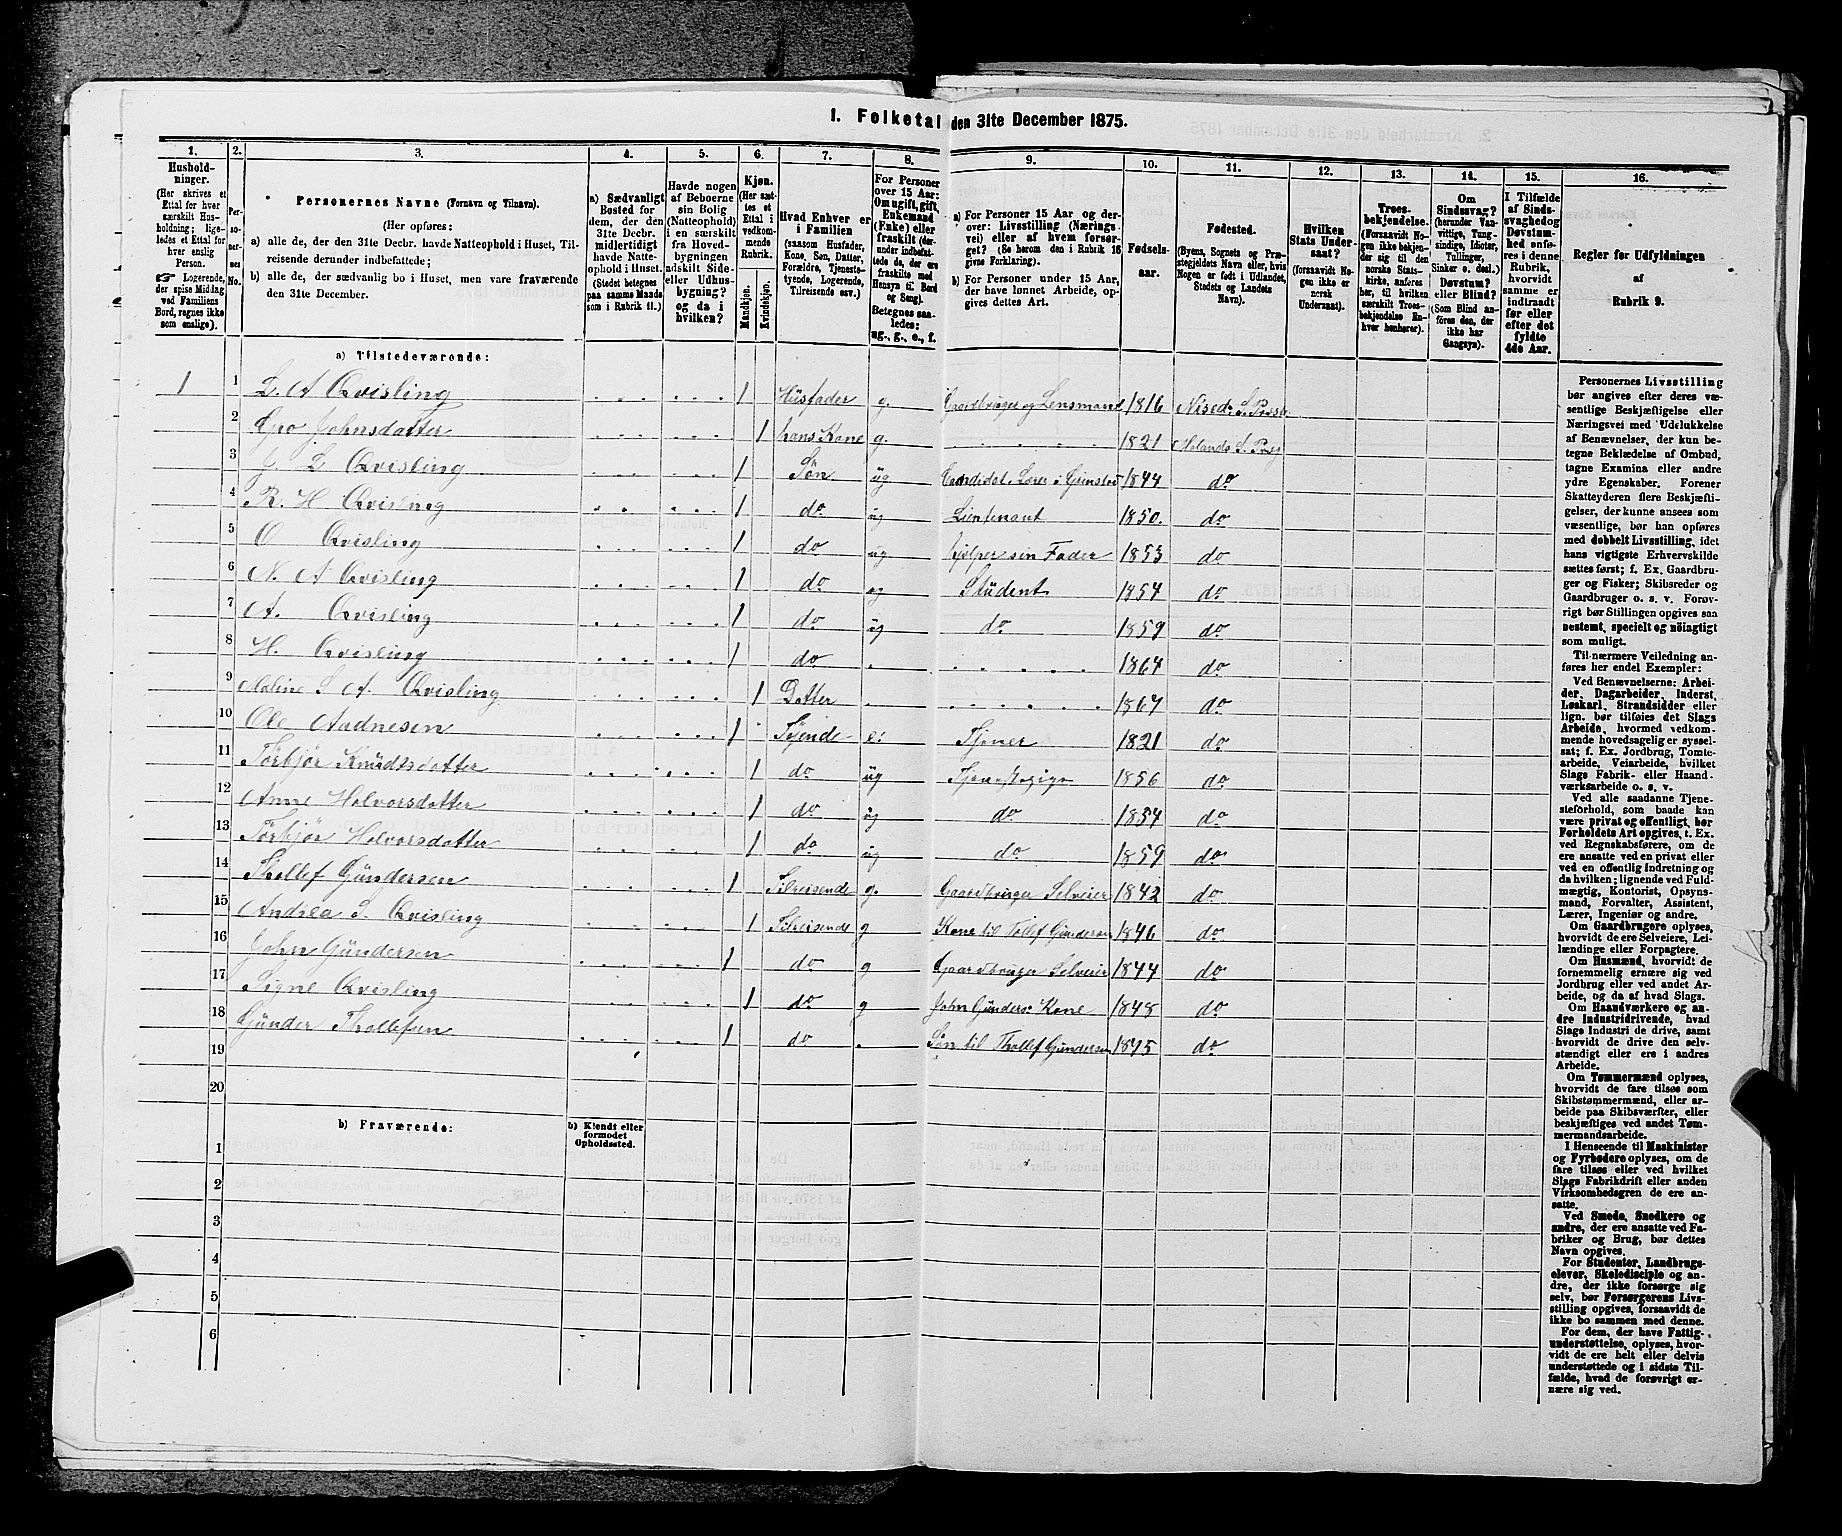 1. Folketal den 31te December 1875.
1. 2. 3. 4. 5. 6. 7. 8. 9. 10. 11. 12. 13. 14. 15. 16.
Hushold-
ninger.
(Her skrives et
Ettal for hver
særskilt Hus-
holdning; lige-
ledes et Ettal for
hver enslig
Person.
☞ Logerende,
der spise Middag
ved Familiens
Bord, regnes ikke
som enslige).
Per-
so-
ner-
nes
No.
Personernes Navne (Fornavn og Tilnavn).
(Her opføres:
a) alle de, der den 31te Decbr. havde Natteophold i Huset, Til-
reisende derunder indbefattede;
b) alle de, der sædvanlig bo i Huset, men vare fraværende
den 31te December.
a) Sædvanligt
Bosted for
dem, der den
31te Decbr.
midlertidigt
havde Natte-
ophold i Huset.
(Stedet betegnes
paa samme Maade
som i Rubrik 11.)
Havde nogen
af Beboerne
sin Bolig
(Natteophold)
i en særskilt
fra Hoved-
bygningen
adskilt Side-
eller Udhus-
bygning?
og da i
hvilken?
Kjøn.
(Her sæt-
tes et
Ettal i
vedkom-
mende
Rubrik.
Mandkjøn.
Kvindekjøn.
Hvad Enhver er
i Familien
(saasom Husfader,
Kone, Søn, Datter,
Forældre, Tjeneste-
tyende, Logerende,
Tilreisende osv.)
For Personer
over 15 Aar:
Om ugift, gift,
Enkemand
(Enke) eller
fraskilt (der-
under indbefat-
tede de, der ere
fraskilte med
Hensyn til Bord
og Seng).
Betegnes saa-
ledes:
ug., g., e., f.
a) For Personer 15 Aar og der-
over: Livsstilling (Nærings-
vei) eller af hvem forsør-
get? (Se herom den i Rubrik 16
givne Forklaring).
b) For Personer under 15 Aar,
der have lønnet Arbeide, op-
gives dettes Art.
Fødsels-
aar.
Fødested.
(Byens, Sognets og Præ-
stegjeldets Navn eller, hvis
Nogen er født i Udlandet,
Stedets og Landets
Navn).
Hvilken
Stats Under-
saat?
(forsaavidt No-
gen ikke er
norsk
Undersaat).
Troes-
bekjendelse.
(Forsaavidt No-
gen ikke bekjen-
der sig til den
norske Stats-
kirke, anføres
her, til hvilken
særskilt Troes-
bekjendelse En-
hver henhører).
Om
Sindssvag?
(herunder Van-
vittige, Tung-
sindige, Idioter,
Tullinger,
Sinker o. desl.)
Døvstum?
eller Blind?
(Som Blind an-
føres den, der
ikke har
Gangsyn).
I Tilfælde
af Sinds-
svaghed og
Døvstum-
hed anfø-
res i denne
Rubrik,
hvorvidt
samme er
indtraadt
før eller
efter det
fyldte
4de Aar.
Regler for Udfyldningen
af
Rubrik 9.
a) Tilstedeværende:
1 1 L. A Qvisling 1 Husfader g. Gaardbruger og Lensmand 1816 Niseda S. Præst
2 Gro Johnsdatter 1 hans Kone g. 1821 Molands S. Præj
3 J L Qvisling 1 Søn ug Candidat. Lærer i Grimstad 1844 do
4 R. H Qvisling 1 do. ug Lieutenant 1850. do
5 O Qvisling 1 do ug hjelper sin Fader 1853 do
6 N. A Qvisling 1 do ug Student 1854 do
7 A. Qvisling 1 do ug do. 1859 do
8 H. Qvisling 1 do 1864 do
9 Maline S A. Qvisling 1 Datter 1867 do
10 Ole Aadnesen 1 Tyende e: Tjener 1821 do
11 Torbjør Knudtsdatter 1 do ug Tjenestepige 1856 do
12 Anne Halvorsdatter 1 do ug do 1854 do
13 Torbjør Halvorsdatter 1 do ug do 1859 do
14 Thollef Gundersen 1 Tilreisende g. Gaardbruger Selveier 1842 do
15 Andrea S. Qvisling 1 Tilreisende g Kone til Tollef Gundersen 1846 do
16 John Gundersen 1 do g Gaardbruger Selveier 1844 do
17 Signe Qvisling 1 do g John Gunders: Kone 1848 do
18 Gunder Thollefsen 1 do Søn til Thollef Gundersen 1875 do
19
20
b) Fraværende:
b) Kjendt eller
formodet
Opholdssted.
1
2
3
4
5
6
Personernes Livsstilling
bør angives efter deres væ-
sentlige Beskjæftigelse eller
Næringsvei med Udelukkelse
af Benævnelser, der kun be-
tegne Beklædelse af Ombud,
tagne Examina eller andre
ydre Egenskaber. Forener
Skatteyderen flere Beskjæfti-
gelser, der kunne ansees som
væsentlige, bør han opføres
med dobbelt Livsstilling, idet
hans vigtigste Erhvervskilde
sættes først; f. Ex. Gaardbru-
ger og Fisker; Skibsreder og
Gaardbruger o. s. v. Forøv-
rigt bør Stillingen opgives saa
bestemt, specielt og nöiagtigt
som muligt.
Til nærmere Veiledning an-
føres her endel Exempler:
Ved Benævnelserne: Arbei-
der, Dagarbeider, Inderst,
Løskarl, Strandsidder eller
lign. bør tilføies det Slags
Arbeide, hvormed vedkom-
mende hovedsagelig er syssel-
sat; f. Ex. Jordbrug, Tomte-
arbeide, Veiarbeide, hvilket
Slags Fabrik- eller Haand-
værksarbeide o. s. v.
Ved alle saadanne Tjene-
steforhold, som baade kan
være privat og offentligt, bør
Forholdets Art opgives, t. Ex.
ved Regnskabsførere, om de
ere ansatte ved en privat eller
ved en offentlig Indretning og
da hvilken; lignende ved Fuld-
mægtig, Kontorist, Opsyns-
mand, Forvalter, Assistent,
Lærer, Ingeniør og andre.
Om Gaardbrugere oplyses,
hvorvidt de ere Selveiere, Lei-
lændinge eller Forpagtere.
Om Husmænd, hvorvidt de
fornemmelig ernære sig ved
Jordbrug eller ved andet Ar-
beide, og da af hvad Slags.
Om Haandværkere og an-
dre Industridrivende, hvad
Slags Industri de drive, samt
hvorvidt de drive den selv-
stændigt eller ere i andres
Arbeide.
Om Tømmermænd oplyses,
hvorvidt de fare tilsøs som
Skibstømmermænd, eller ar-
beide paa Skibsværfter, eller
beskjæftiges ved andet Tøm-
mermandsarbeide.
I Henseende til Maskinister
og Fyrbødere oplyses, om de
fare tilsøs eller ved hvilket
Slags Fabrikdrift eller anden
Virksomhedsgren de ere an-
satte.
Ved Smede, Snedkere og
andre, der ere ansatte ved Fa-
briker og Brug, bør dettes
Navn opgives.
For Studenter, Landbrugs-
elever, Skoledisciple og an-
dre, der ikke forsørge sig
selv, bør Forsørgerens Livs-
stilling opgives, forsaavidt de
ikke bo sammen med denne.
For dem, der have Fattig-
understøttelse, oplyses, hvor-
vidt de ere helt eller delvis
understøttede og i sidste Til-
fælde, hvad de forøvrigt er-
nære sig ved.